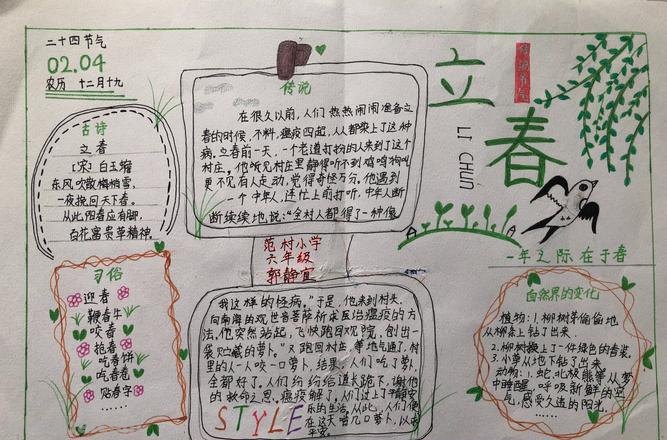 二十四节气
02.04
农历 十二月十九
古诗
立春
[宋]白玉蟾
东风吹散梅梢雪,
一夜挽回天下春。
从此阳春应有脚,
百花富贵草精神。
习俗
迎春
鞭春牛
咬春
抢春
吃春饼
吃春卷
贴春字
……
传说
在很久以前,人们热热闹闹准备立
春的时候,不料,瘟疫四起,人人都染上了这种
病。立春前一天,一个老道打扮的人来到了这个
村庄。他听见村里静得听不到鸡鸣狗叫
更不见有人走动,觉得奇怪万分。他遇到
一个中年人,连忙上前打听,中年人断
断续续地说:“全村人都得了一种像
范村小学
六年级
郭静宜
我这样的怪病。”于是,他来到村头,
向南海的观世音菩萨祈求医治瘟疫的方
法。他突然站起,飞快跑回观院,刨出一
袋贮藏的萝卜。又跑回村庄,等地气通了,村
里的人一人咬一口萝卜,结果,人们吃了萝卜,
全都好了。人们纷纷给道长跪下,谢他
的救命之恩。瘟疫解了,人们过上了平静安
乐的生活,从此,人们便
在这天啃几口萝卜,以求
平安。
STYLE
立春
传统节气
LI CHUN
一年之际在于春
自然界的变化
植物:1.柳树芽偷偷地
从柳条上钻了出来。
2.柳树换上了一件绿色的春装。
3.小草从地下钻了出来
动物:1.蛇、北极熊等从梦
中睡醒,呼吸新鲜的空
气,感受久违的阳光。
……